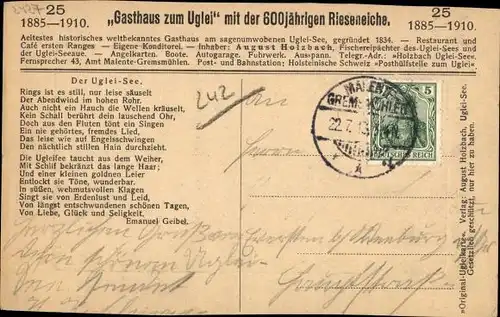 25 25
1885—1910. „Gasthaus zum Uglei“ mit der 600jährigen Rieseneiche. 1885—1910.
Aeltestes historisches weltbekanntes Gasthaus am sagenumwobenen Uglei-See, gegründet 1834. — Restaurant und
Café ersten Ranges — Eigene Konditorei. — Inhaber: August Holzbach, Fischereipächter des Uglei-Sees und
der Uglei-Seeaue. Angelkarten. Boote. Autogarage. Fuhrwerk. Ausspann. Telegr.-Adr.: „Holzbach Uglei-See.
Fernsprecher 43, Amt Malente-Gremsmühlen. Post- und Bahnstation: Holsteinische Schweiz „Posthilfstelle zum Uglei“
Der Uglei-See.
Rings ist es still, nur leise säuselt
Der Abendwind im hohen Rohr.
Auch nicht ein Hauch die Wellen kräuselt,
Kein Schall berührt dein lauschend Ohr,
Doch aus den Fluten tönt ein Singen
Ein nie gehörtes, fremdes Lied,
Das leise wie auf Engelschwingen
Den nächtlich stillen Hain durchzieht.
Die Ugleifee taucht aus dem Weiher,
Mit Schilf bekränzt das lange Haar;
Und einer kleinen goldnen Leier
Entlockt sie Töne, wunderbar.
In süßen, wehmutsvollen Klagen
Singt sie von Erdenlust und Leid,
Von längst entschwundenen schönen Tagen,
Von Liebe, Glück und Seligkeit.
Emanuel Geibel.
242
An
Herrn
MALENTE
GREMSMÜHLEN
22.7.
5
DEUTSCHES REICH
Herzlichen Gruß
schönen Uglei-
Eversten b/ Oldenburg
Hauptstraße
„Original-Ugleikarte“. Verlag: August Holzbach, Uglei-See.
Gesetzlich geschützt, nur hier zu haben.